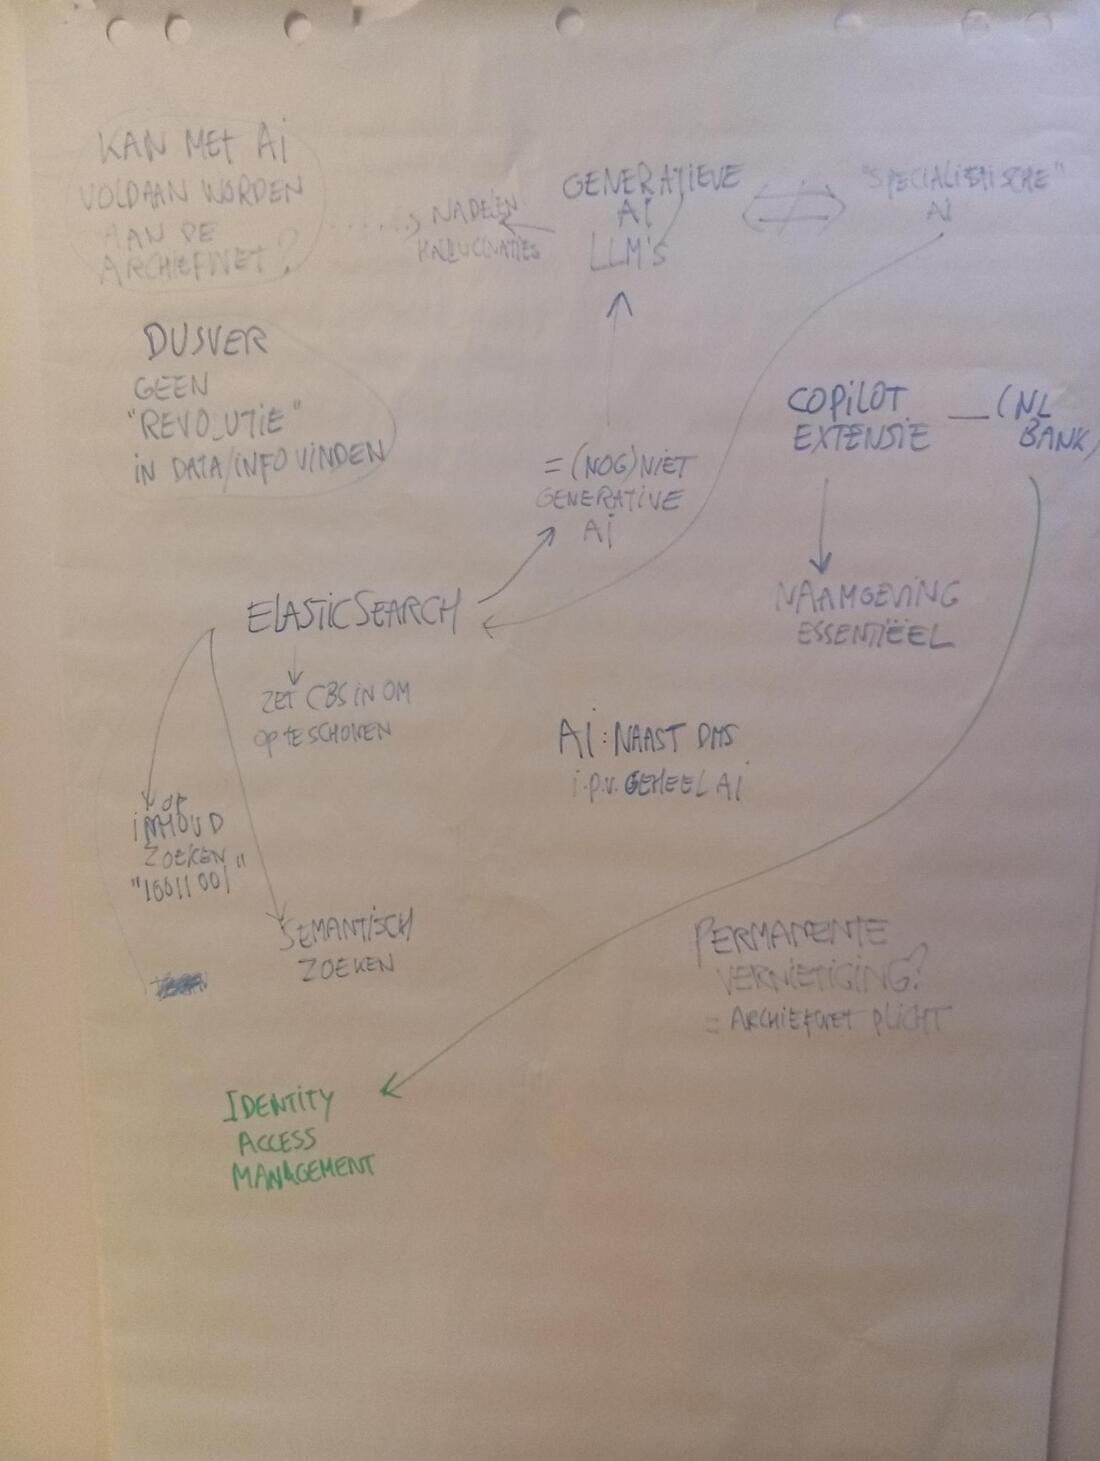 KAN MET Ai
VOLDAAN WORDEN
AAN DE
ARCHIEFWET?
NADELEN
HALLUCINATIES
GENERATIEVE
AI
LLM'S
"SPECIALISTISCHE"
Ai
DUSVER
GEEN
"REVOLUTIE"
iN DATA/INFO VINDEN
COPILOT
EXTENSIE
(NL
BANK)
= (NOG) NIET
GENERATIVE
Ai
NAAMGEVING
ESSENTIËEL
ELASTICSEARCH
ZET CBS iN OM
OP TE SCHONEN
AI: NAAST DMS
i.p.v. GEHEEL AI
OP
INHOUD
ZOEKEN
"10011001"
SEMANTISCH
ZOEKEN
PERMANENTE
VERNIETIGING?
= ARCHIEFWET PLICHT
IDENTITY
ACCESS
MANAGEMENT